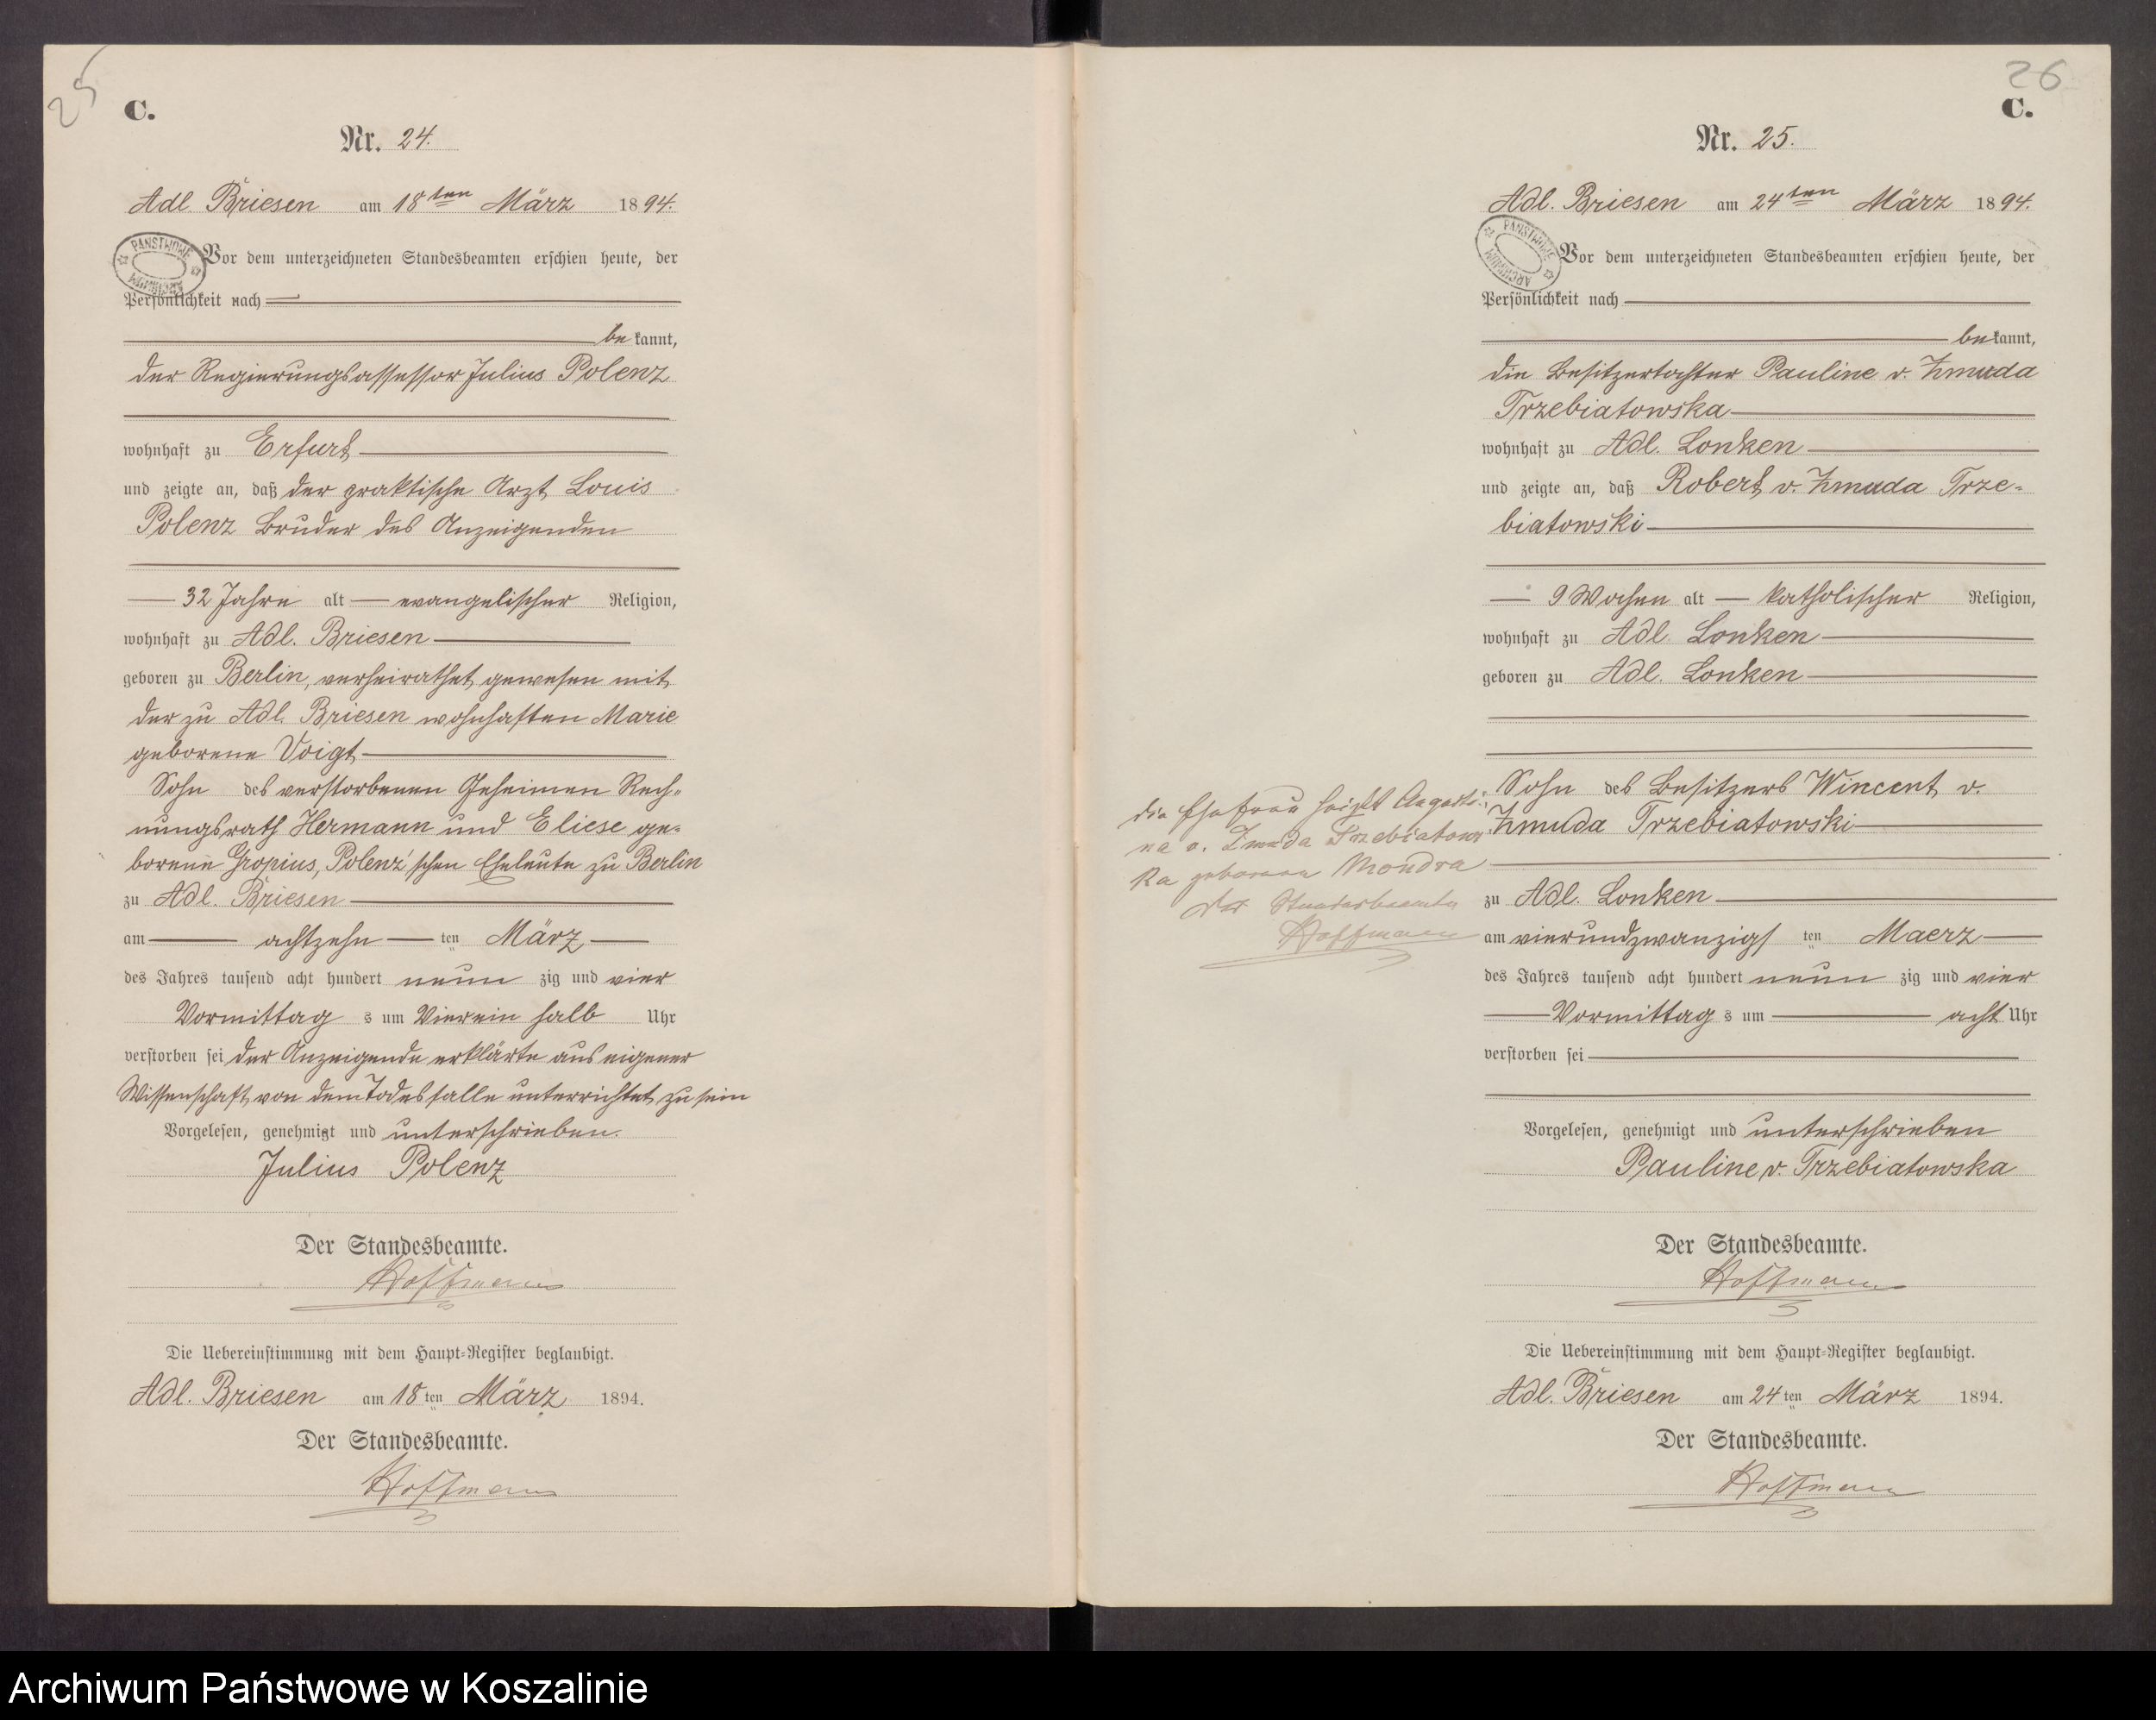 25
C.
Nr. 24.
Adl. Briesen am 18ten März 1894.
PAŃSTWOWE ARCHIWUM
Vor dem unterzeichneten Standesbeamten erschien heute, der
Persönlichkeit nach
bekannt,
der Regierungsassessor Julius Polenz
wohnhaft zu Erfurt
und zeigte an, daß der praktische Arzt Louis
Polenz Bruder des Anzeigenden
32 Jahre alt evangelischer Religion,
wohnhaft zu Adl. Briesen
geboren zu Berlin, verheirathet gewesen mit
der zu Adl. Briesen wohnhaften Marie
geborene Voigt
Sohn des verstorbenen Geheimen Rech-
nungsrath Hermann und Eliese ge-
borene Gropius, Polenz'schen Eheleute zu Berlin
zu Adl. Briesen
am achtzehn ten März
des Jahres tausend acht hundert neun zig und vier
Vormittag s um Vierein halb Uhr
verstorben sei der Anzeigende erklärte aus eigener
Wissenschaft von dem Todesfalle unterrichtet zu sein
Vorgelesen, genehmigt und unterschrieben.
Julius Polenz
Der Standesbeamte.
Hoffmann
Die Uebereinstimmung mit dem Haupt-Register beglaubigt.
Adl. Briesen am 18ten März 1894.
Der Standesbeamte.
Hoffmann
26
C.
Nr. 25.
Adl. Briesen am 24ten März 1894.
PAŃSTWOWE ARCHIWUM
Vor dem unterzeichneten Standesbeamten erschien heute, der
Persönlichkeit nach
bekannt,
die Besitzertochter Pauline v. Zmuda
Trzebiatowska
wohnhaft zu Adl. Lonken
und zeigte an, daß Robert v. Zmuda Trze-
biatowski
9 Wochen alt katholischer Religion,
wohnhaft zu Adl. Lonken
geboren zu Adl. Lonken
Sohn des Besitzers Wincent v.
Zmuda Trzebiatowski
zu Adl. Lonken
am vierundzwanzigs ten Maerz
des Jahres tausend acht hundert neun zig und vier
Vormittag s um acht Uhr
verstorben sei
Vorgelesen, genehmigt und unterschrieben
Pauline v. Trzebiatowska
Der Standesbeamte.
Hoffmann
Die Uebereinstimmung mit dem Haupt-Register beglaubigt.
Adl. Briesen am 24ten März 1894.
Der Standesbeamte.
Hoffmann
die Ehefrau heißt Augusti-
na v. Zmuda Trzebiatows
ka geborene Mondra
Der Standesbeamte
Hoffmann
Archiwum Państwowe w Koszalinie